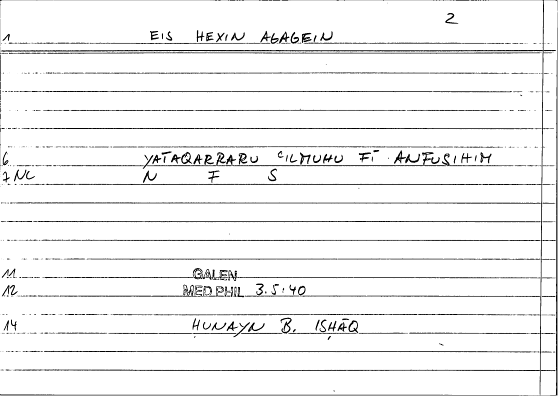 2
1 EIS HEXIN AGAGEIN
6 YATAQARRARU ʿILMUHU FĪ ANFUSIHIM
7 NL N F S
11 GALEN
12 MED PHIL 3.5:40
14 ḤUNAYN B. ISḤĀQ